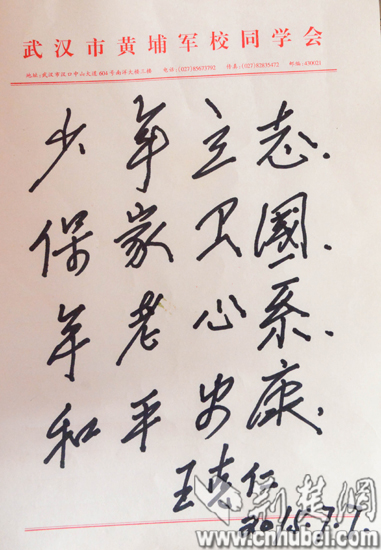 武汉市黄埔军校同学会
地址:武汉市汉口中山大道604号南洋大楼三楼 电话:(027)85673702 传真:(027)82835472 邮编:430021
少年立志.
保家卫國.
年老心系.
和平安康.
王老仁
2015.7.7.
荆楚網
www.cnhubei.com